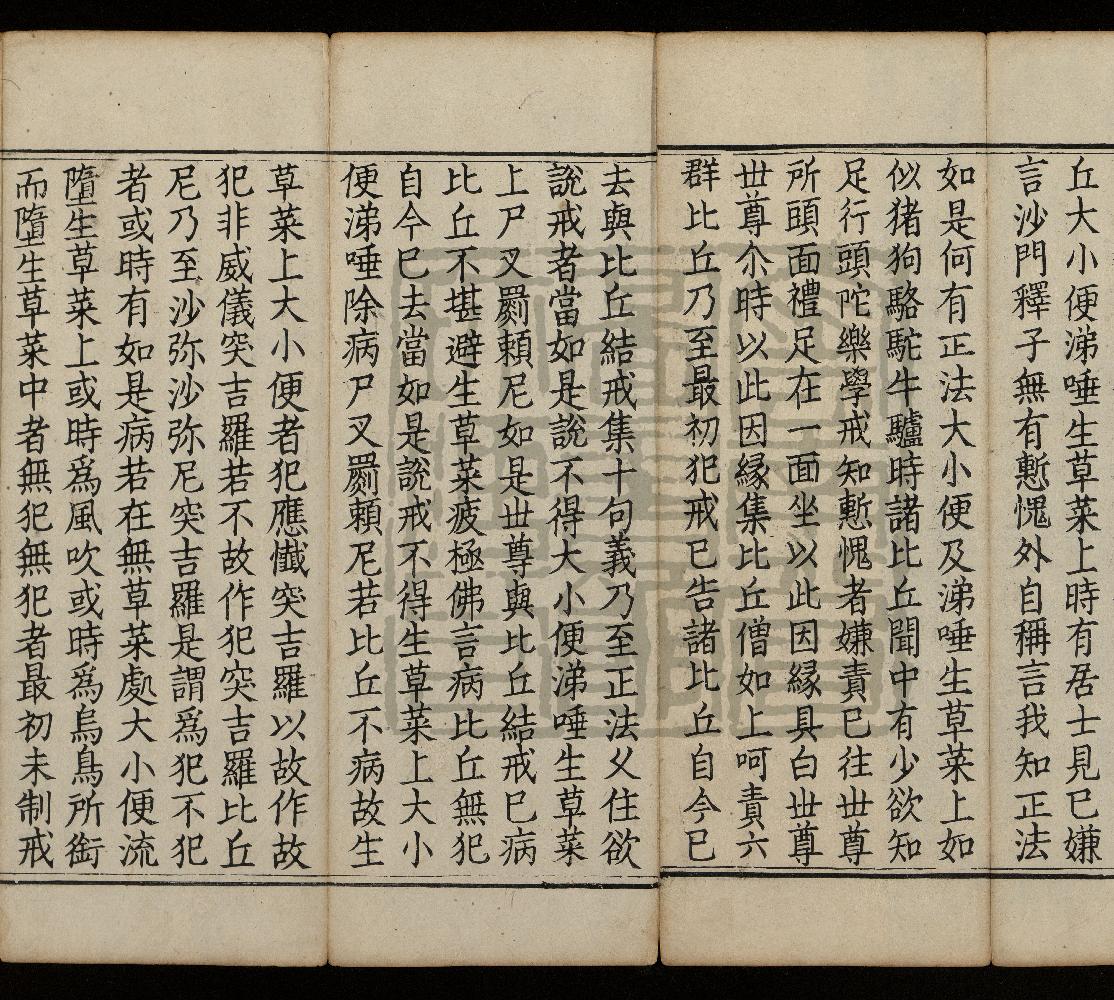 丘大小便涕唾生草菜上時有居士見已嫌
言沙門釋子無有慙愧外自稱言我知正法
如是何有正法大小便及涕唾生草菜上如
似猪狗駱駝牛驢時諸比丘聞中有少欲知
足行頭陀樂學戒知慙愧者嫌責已往世尊
所頭面禮足在一面坐以此因緣具白世尊
世尊尒時以此因緣集比丘僧如上呵責六
群比丘乃至最初犯戒已告諸比丘自今已
去與比丘結戒集十句義乃至正法久住欲
說戒者當如是說不得大小便涕唾生草菜
上尸叉罽賴尼如是世尊與比丘結戒已病
比丘不堪避生草菜疲極佛言病比丘無犯
自今已去當如是說戒不得生草菜上大小
便涕唾除病尸叉罽賴尼若比丘不病故生
草菜上大小便者犯應懴突吉羅以故作故
犯非威儀突吉羅若不故作犯突吉羅比丘
尼乃至沙弥沙弥尼突吉羅是謂爲犯不犯
者或時有如是病若在無草菜處大小便流
墮生草菜上或時爲風吹或時爲鳥所銜
而墮生草菜中者無犯無犯者最初未制戒